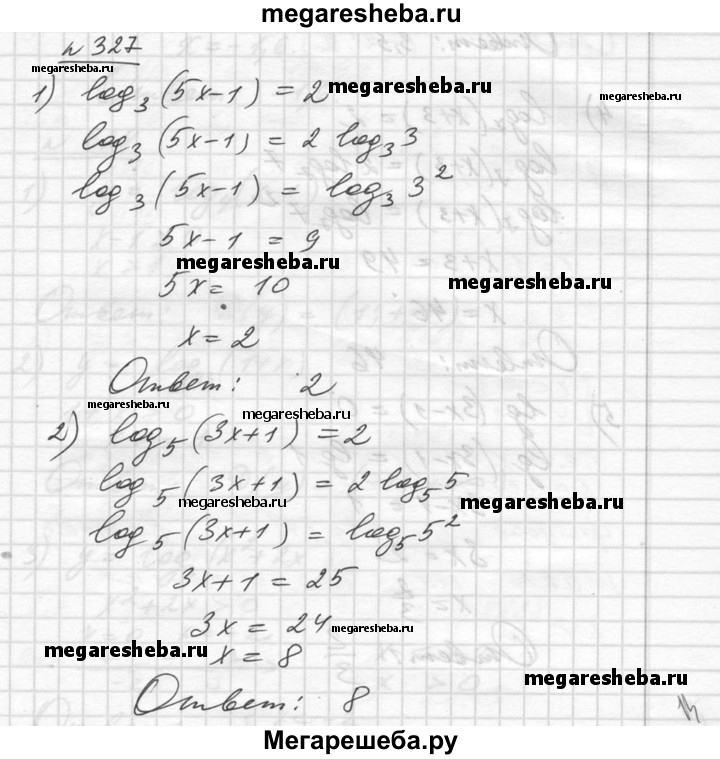 megaresheba.ru
№ 327
megaresheba.ru
1) log₃ (5x-1) = 2 megaresheba.ru
megaresheba.ru
log₃ (5x-1) = 2 log₃ 3
log₃ (5x-1) = log₃ 3²
5x-1 = 9
megaresheba.ru
5x = 10
megaresheba.ru
x = 2
Ответ: 2
megaresheba.ru
megaresheba.ru
2) log₅ (3x+1) = 2
log₅ (3x+1) = 2 log₅ 5
megaresheba.ru
megaresheba.ru
log₅ (3x+1) = log₅ 5²
3x+1 = 25
3x = 24
megaresheba.ru
megaresheba.ru
x = 8
megaresheba.ru
Ответ: 8
Мегарешеба.ру